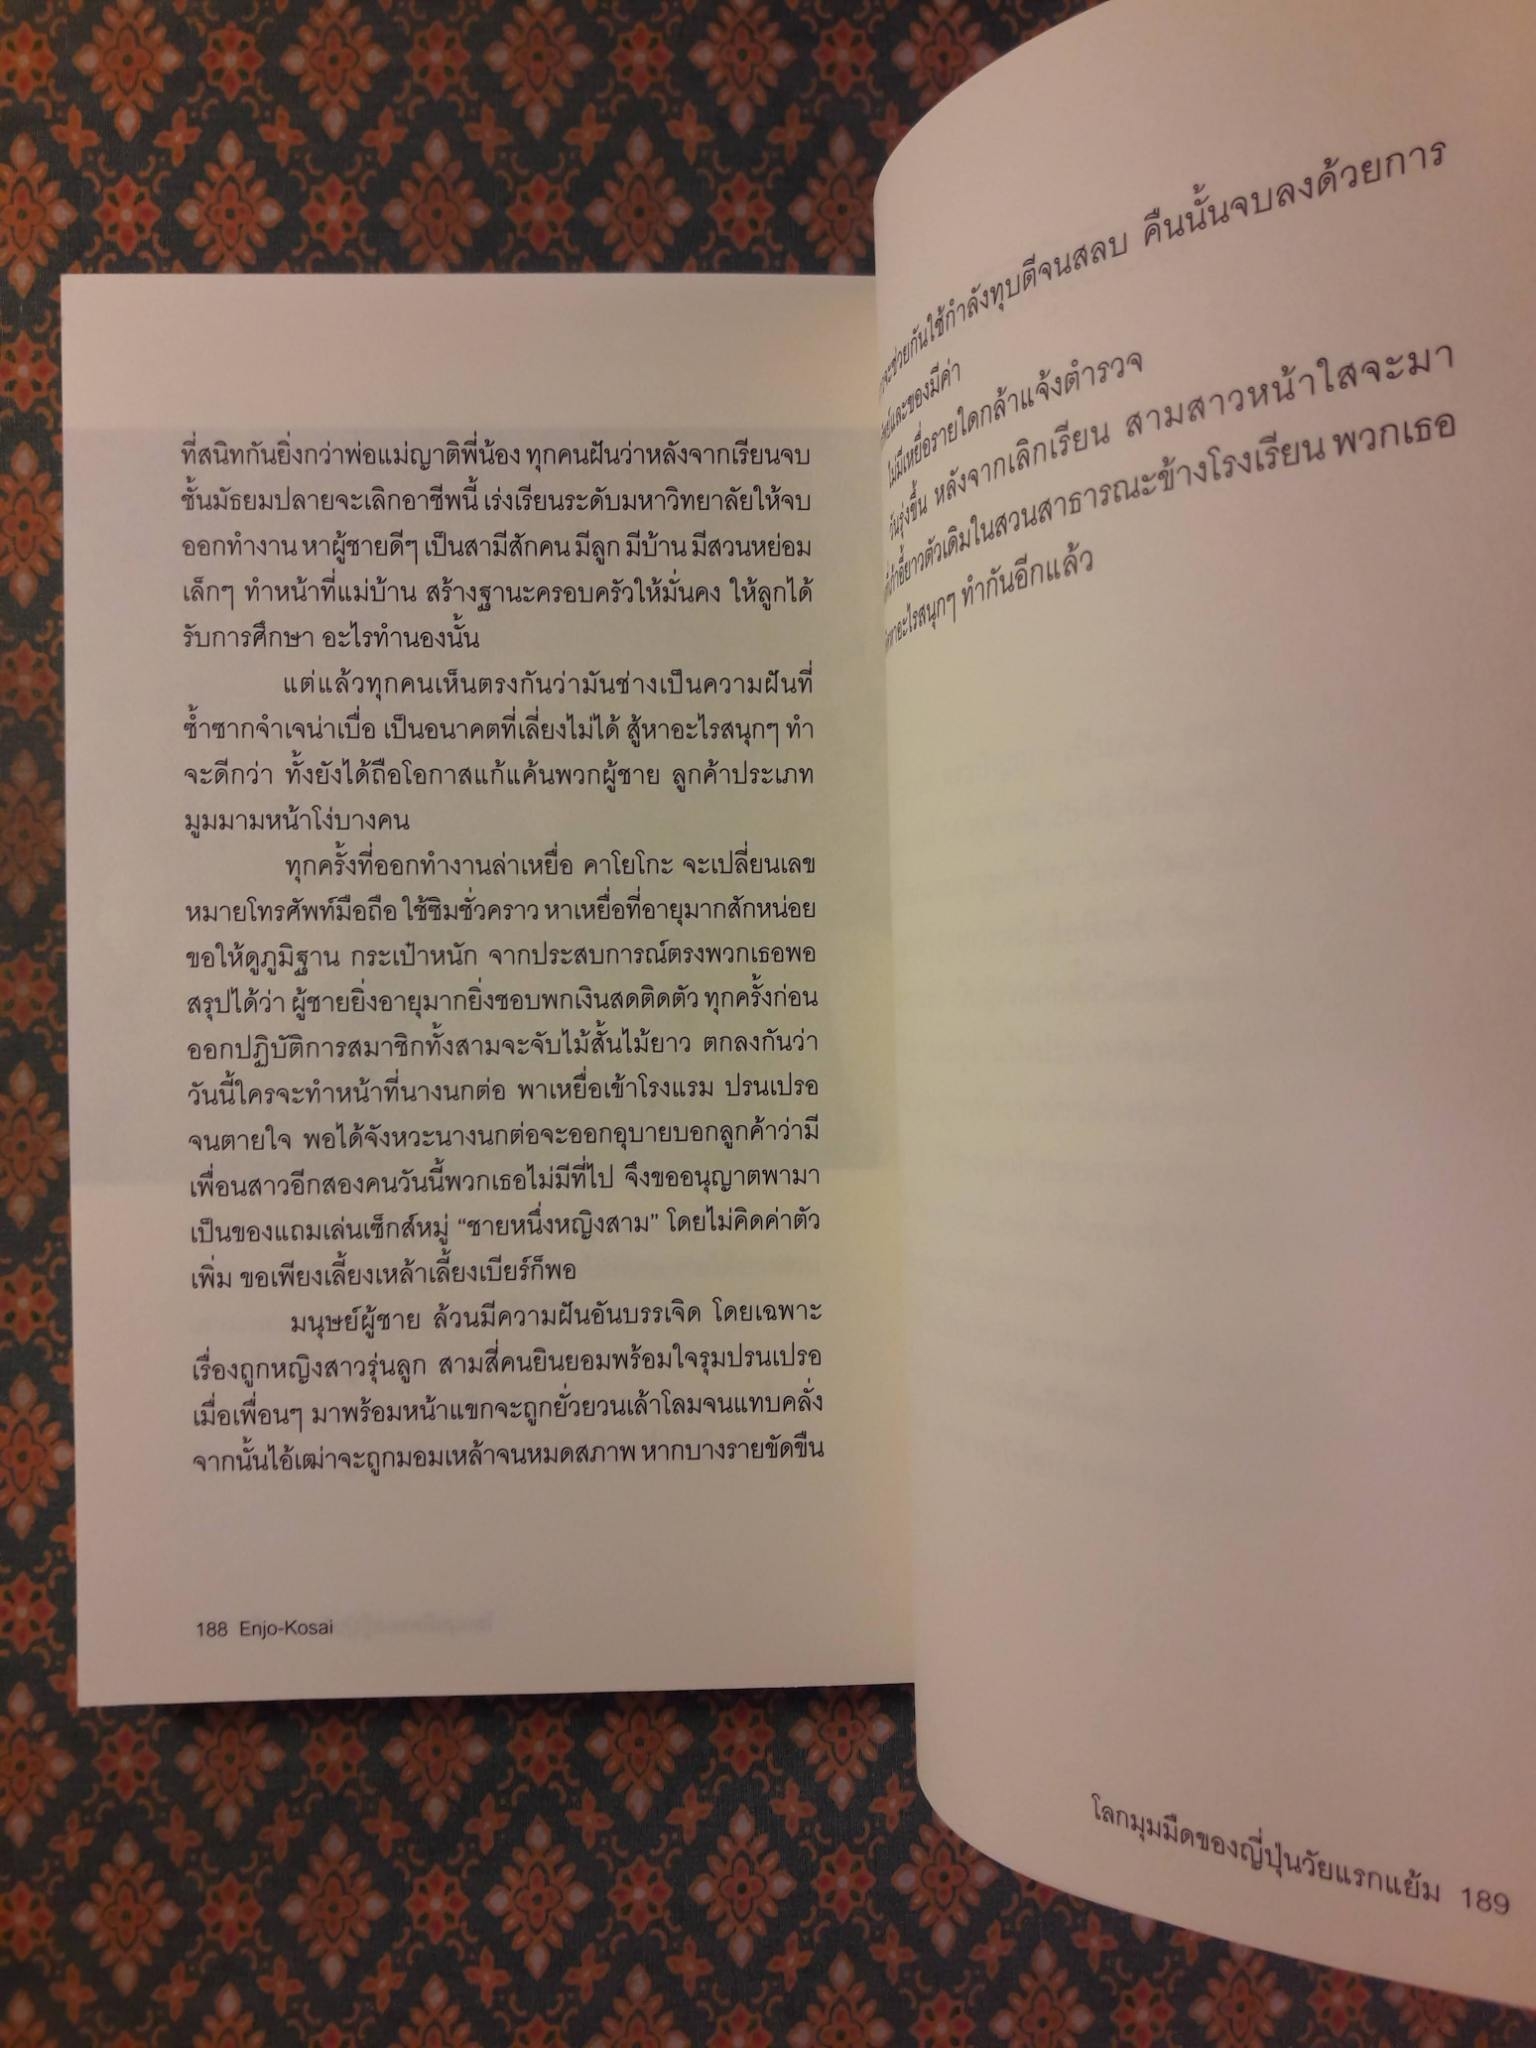 ที่สนิทกันยิ่งกว่าพ่อแม่ญาติพี่น้อง ทุกคนฝันว่าหลังจากเรียนจบ
ชั้นมัธยมปลายจะเลิกอาชีพนี้ เร่งเรียนระดับมหาวิทยาลัยให้จบ
ออกทำงาน หาผู้ชายดีๆ เป็นสามีสักคน มีลูก มีบ้าน มีสวนหย่อม
เล็กๆ ทำหน้าที่แม่บ้าน สร้างฐานะครอบครัวให้มั่นคง ให้ลูกได้
รับการศึกษา อะไรทำนองนั้น
แต่แล้วทุกคนเห็นตรงกันว่ามันช่างเป็นความฝันที่
ซ้ำซากจำเจน่าเบื่อ เป็นอนาคตที่เลี่ยงไม่ได้ สู้หาอะไรสนุกๆ ทำ
จะดีกว่า ทั้งยังได้ถือโอกาสแก้แค้นพวกผู้ชาย ลูกค้าประเภท
มูมมามหน้าโง่บางคน
ทุกครั้งที่ออกทำงานล่าเหยื่อ คาโยโกะ จะเปลี่ยนเลข
หมายโทรศัพท์มือถือ ใช้ซิมชั่วคราว หาเหยื่อที่อายุมากสักหน่อย
ขอให้ดูภูมิฐาน กระเป๋าหนัก จากประสบการณ์ตรงพวกเธอพอ
สรุปได้ว่า ผู้ชายยิ่งอายุมากยิ่งชอบพกเงินสดติดตัว ทุกครั้งก่อน
ออกปฏิบัติการสมาชิกทั้งสามจะจับไม้สั้นไม้ยาว ตกลงกันว่า
วันนี้ใครจะทำหน้าที่นางนกต่อ พาเหยื่อเข้าโรงแรม ปรนเปรอ
จนตายใจ พอได้จังหวะนางนกต่อจะออกอุบายบอกลูกค้าว่ามี
เพื่อนสาวอีกสองคนวันนี้พวกเธอไม่มีที่ไป จึงขออนุญาตพามา
เป็นของแถมเล่นเซ็กส์หมู่ “ชายหนึ่งหญิงสาม” โดยไม่คิดค่าตัว
เพิ่ม ขอเพียงเลี้ยงเหล้าเลี้ยงเบียร์ก็พอ
มนุษย์ผู้ชาย ล้วนมีความฝันอันบรรเจิด โดยเฉพาะ
เรื่องถูกหญิงสาวรุ่นลูก สามสี่คนยินยอมพร้อมใจรุมปรนเปรอ
เมื่อเพื่อนๆ มาพร้อมหน้าแขกจะถูกยั่วยวนเล้าโลมจนแทบคลั่ง
จากนั้นไอ้เฒ่าจะถูกมอมเหล้าจนหมดสภาพ หากบางรายขัดขืน
188 Enjo-Kosai
จะช่วยกันใช้กำลังทุบตีจนสลบ คืนนั้นจบลงด้วยการ
และของมีค่า
ไม่มีเหยื่อรายใดกล้าแจ้งตำรวจ
วันรุ่งขึ้น หลังจากเลิกเรียน สามสาวหน้าใสจะมา
เก้าอี้ยาวตัวเดิมในสวนสาธารณะข้างโรงเรียน พวกเธอ
หาอะไรสนุกๆ ทำกันอีกแล้ว
โลกมุมมืดของญี่ปุ่นวัยแรกแย้ม 189